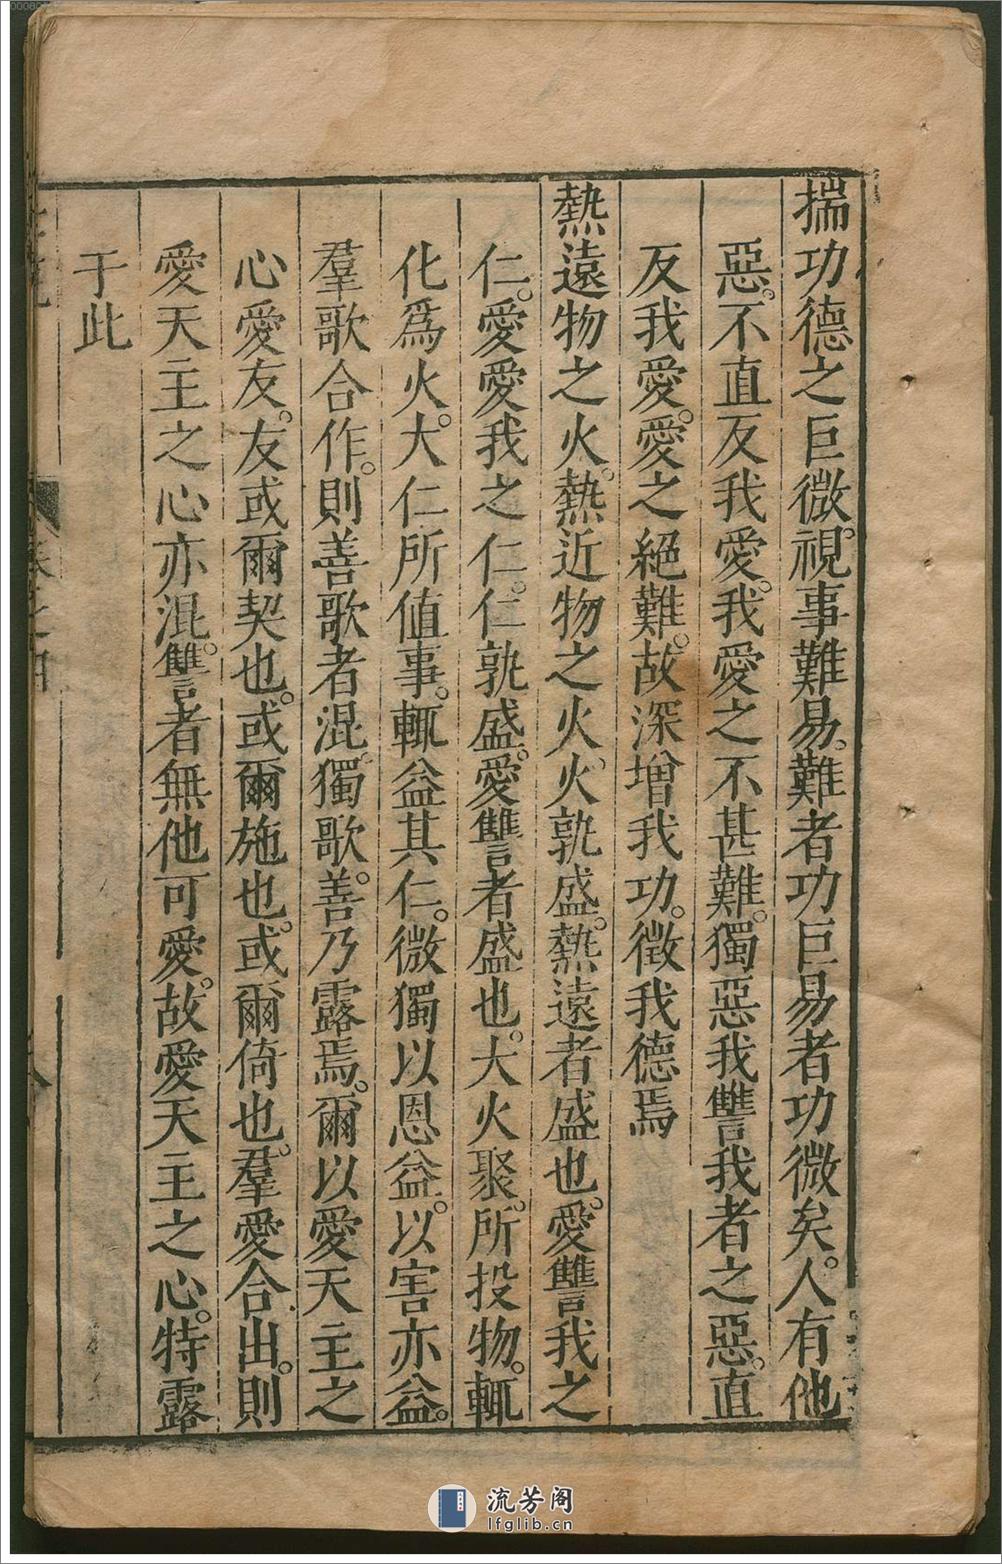 揣功德之巨微。視事難易。難者功巨易者功微矣。人有他
惡。不直反我愛。我愛之不甚難。獨惡我讐我者之惡。直
反我愛。愛之絕難。故深增我功。徵我德焉
熱遠物之火。熱近物之火。火孰盛。熱遠者盛也。愛讐我之
仁。愛愛我之仁。仁孰盛。愛讐者盛也。大火聚。所投物。輒
化爲火。大仁所值事。輒益其仁。微獨以恩益。以害亦益。
羣歌合作。則善歌者混。獨歌。善乃露焉。爾以愛天主之
心愛友。友或爾契也。或爾施也。或爾倚也。羣愛合出。則
愛天主之心亦混。讐者無他可愛。故愛天主之心。特露
于此
流芳阁
lfglib.cn